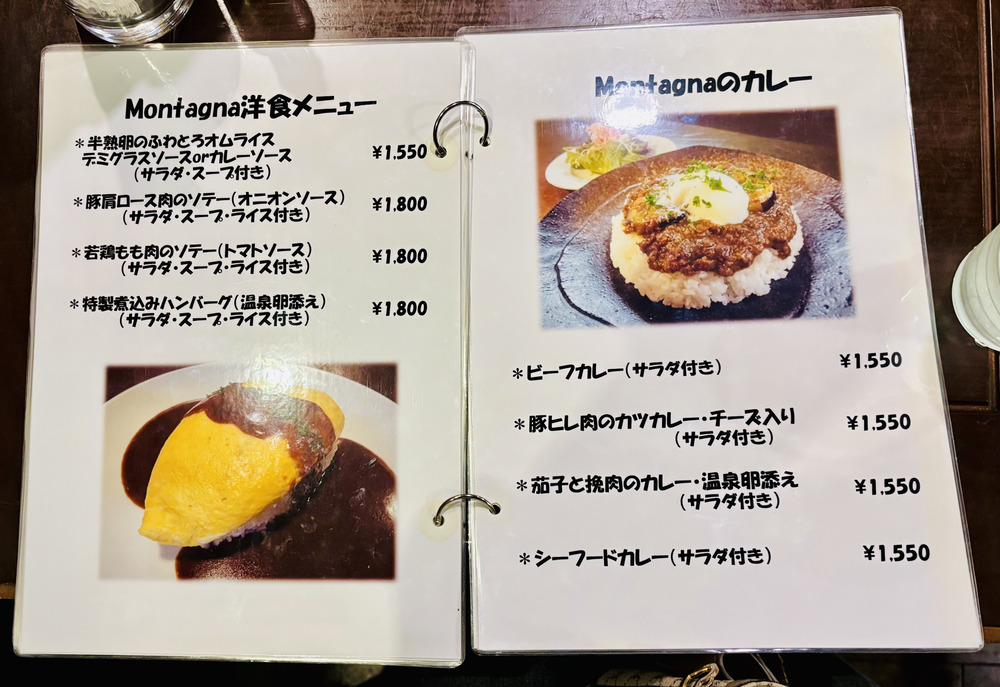 Montagna洋食メニュー
＊半熟卵のふわとろオムライス
デミグラスソースorカレーソース
(サラダ・スープ付き)
¥1,550
＊豚肩ロース肉のソテー(オニオンソース)
(サラダ・スープ・ライス付き)
¥1,800
＊若鶏もも肉のソテー(トマトソース)
(サラダ・スープ・ライス付き)
¥1,800
＊特製煮込みハンバーグ(温泉卵添え)
(サラダ・スープ・ライス付き)
¥1,800
Montagnaのカレー
＊ビーフカレー(サラダ付き)
¥1,550
＊豚ヒレ肉のカツカレー・チーズ入り
(サラダ付き)
¥1,550
＊茄子と挽肉のカレー・温泉卵添え
(サラダ付き)
¥1,550
＊シーフードカレー(サラダ付き)
¥1,550